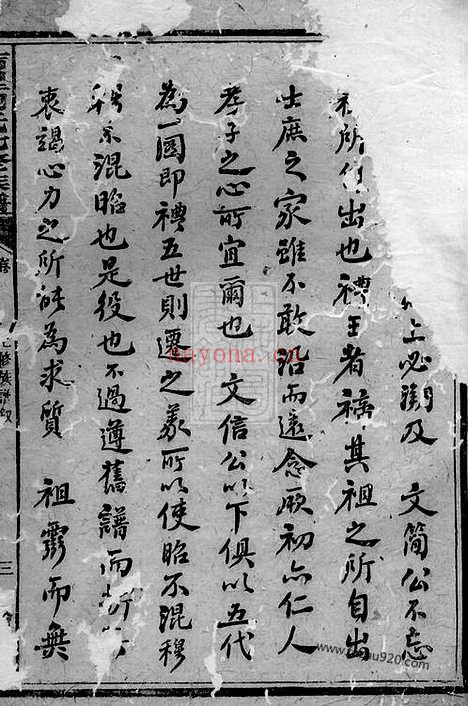 上必溯及 文简公不忘
所自出也禮王者禘其祖之所自出
士庶之家雖不敢沿而遠念厥初亦仁人
孝子之心所宜爾也 文信公以下俱以五代
為一圖即禮五世則遷之義所以使昭不混穆
穆不混昭也是役也不過遵舊譜而
衷竭心力之所能為求質 祖靈而無
修族譜
卷
修族譜叙
三
nayona.cn
www.jiapu920.com